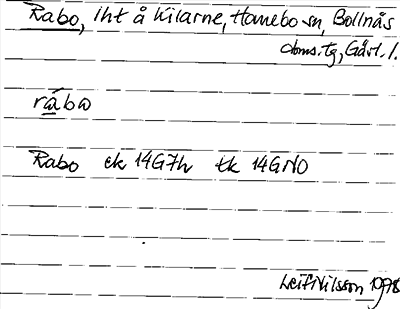 Rabo, lht å Kilarne, Hanebo sn, Bollnäs
doms.tg, Gävl. l.
rabo
Rabo ek 14G7h tk 14GNO
Leif Nilsson 1998